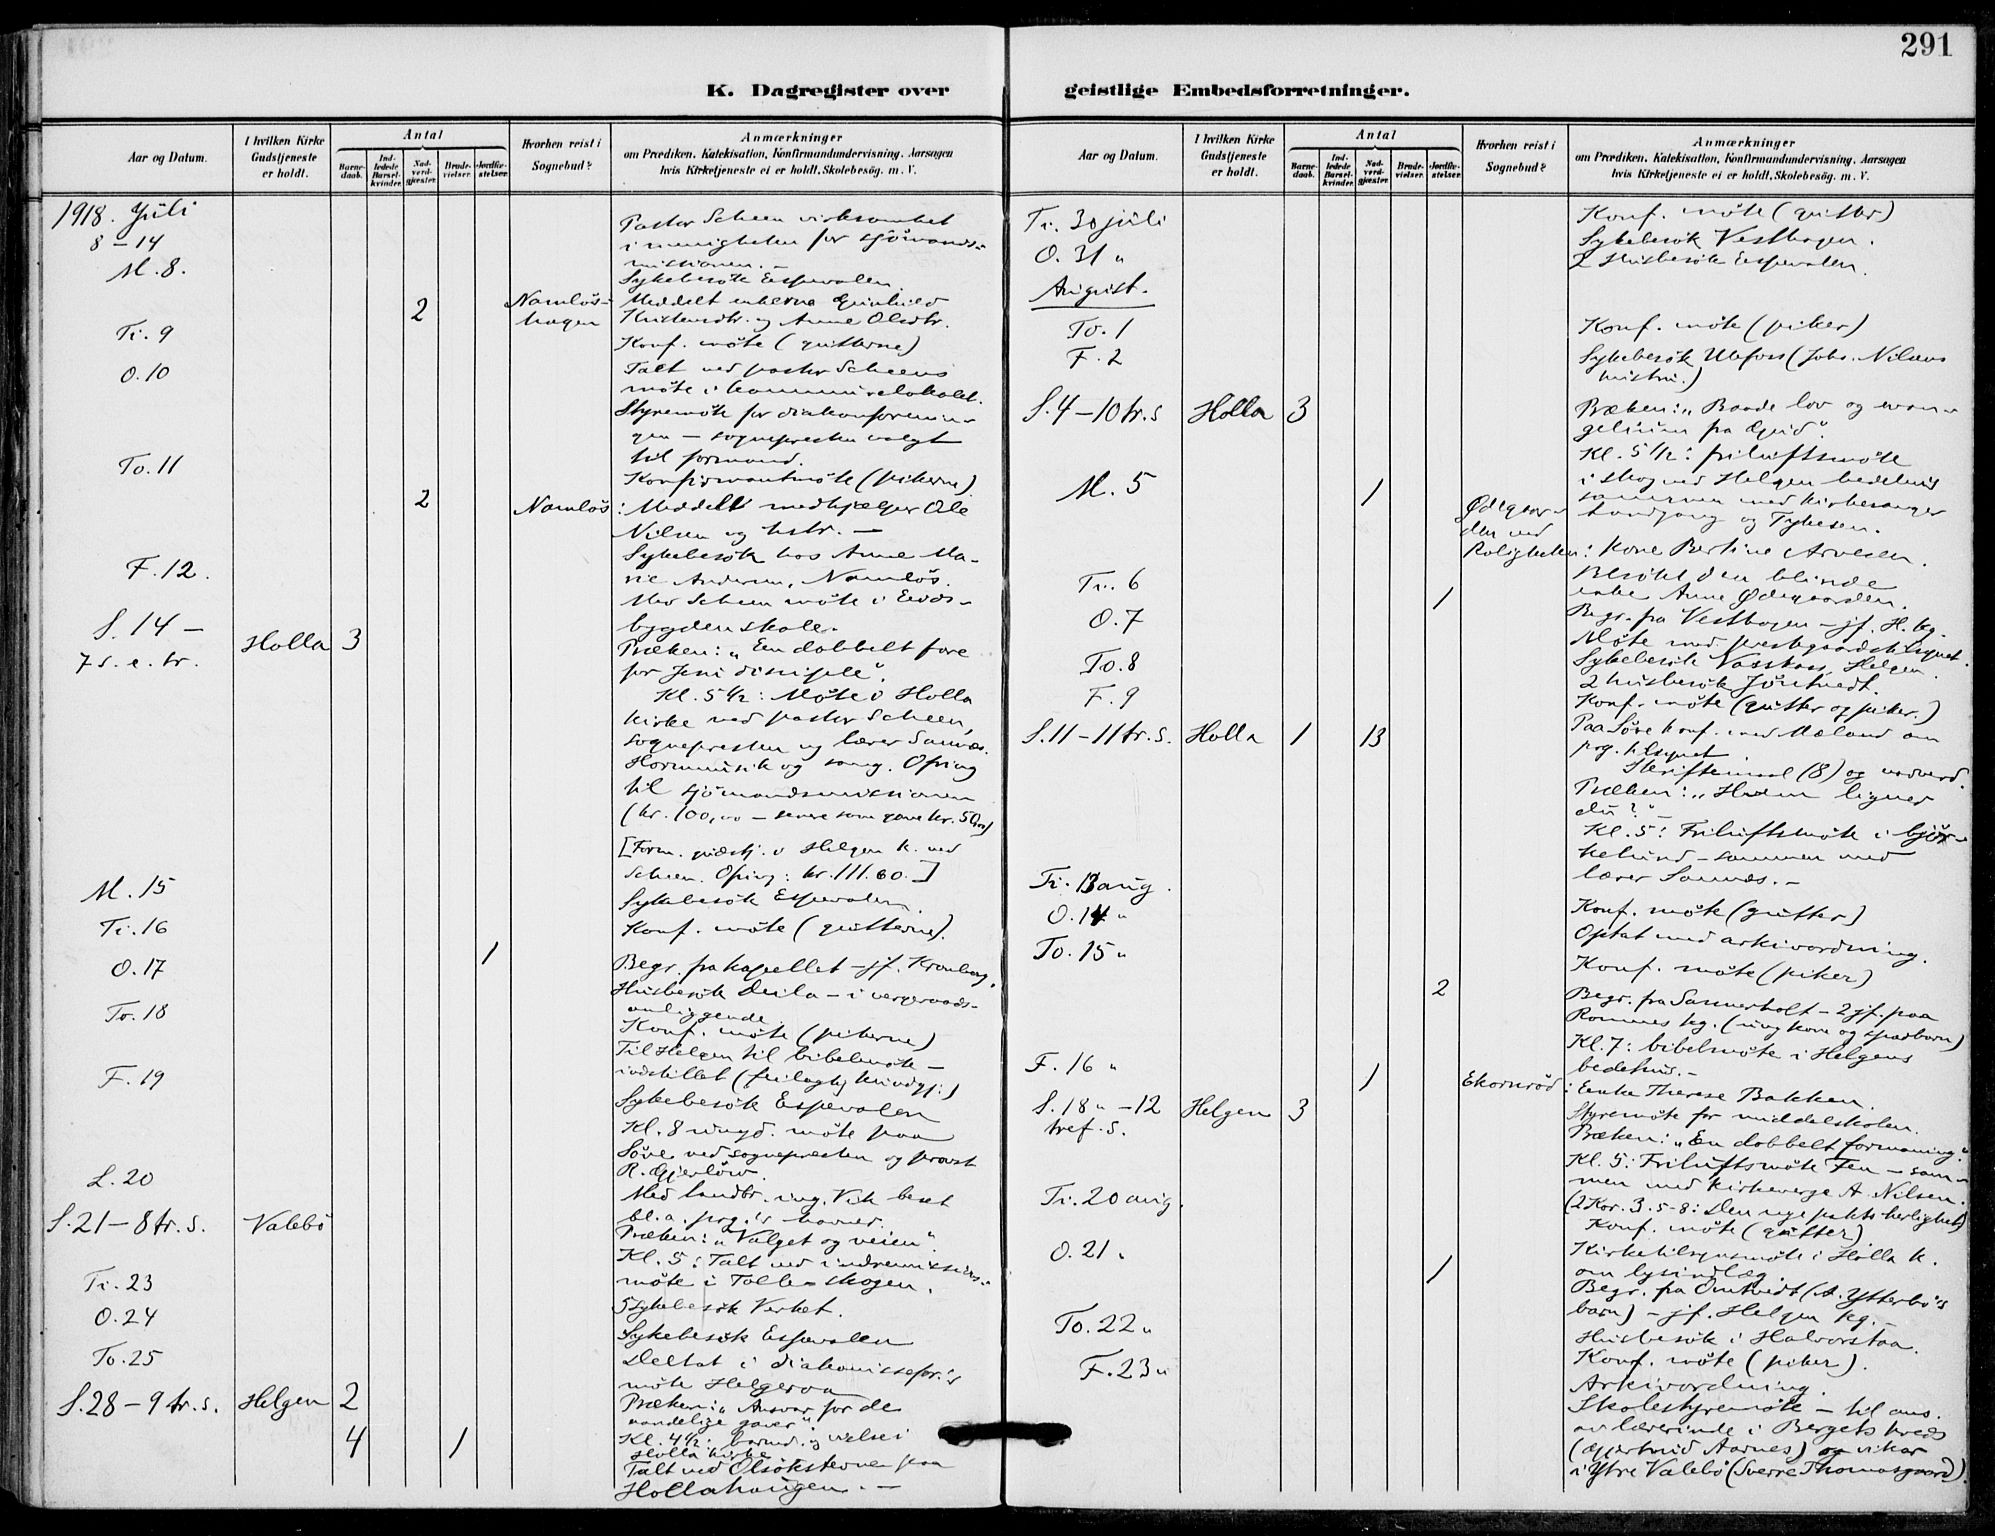 291
K. Dagregister over geistlige Embedsforretninger.
Aar og Datum.
I hvilken Kirke Gudstjeneste er holdt.
Antal
Barnedaab.
Indledede Barselkvinder.
Nadverdgjæster.
Brudevielser.
Jordfæstelser.
Hvorhen reist i Sognebud?
Anmærkninger
om Prædiken, Katekisation, Konfirmandundervisning, Aarsagen
hvis Kirketjeneste ei er holdt, Skolebesøg. m. V.
1918. Juli
8 – 14 Pastor Scheen virksomhet
i menigheten for sjömands-
missionen. –
M. 8. Sykebesök Espevalen
2 Namlös- Meddelt enkerne Gunhild
hagen Kristensdtr. og Anne Olsdtr.
Ti. 9 Konf. möte (gutterne)
O. 10 Talt ved pastor Scheens
möte i kommunelokalet.
Styremöte for diakonforenin-
gen – sognepresten valgt
til formand.
To. 11 Konfirmantmöte (pikerne)
2 Namlös: Meddelt medhjælper Ole
Nilsen og hstr. –
F. 12. Sykebesök hos Anne Ma-
rie Andersen, Namlös.
Mev Scheen möte i Eids-
bygden skole.
S. 14 – Holla 3
7 s. e. tr. Præken: „En dobbelt fare
for Jesu disciple".
Kl. 5 1/2: Möte i Holla
kirke ved pastor Scheen,
sognepresten og lærer Sannes.
Hornmusik og sang. Ofring
til sjömandsmissionen
(kr. 100,00 – senere som gave kr. 50,00)
[Form. gudstj. i Helgen k. ved
Scheen. Ofring: kr. 111.60.]
M. 15 Sykebesök Espevalen.
Ti. 16 Konf. möte (gutterne).
O. 17 1 Begr. fra kapellet – jf. Kronborg.
Husbesök Deila – i vergeraads-
anliggende.
To. 18 Konf. möte (pikerne)
Til Helgen til bibelmöte –
indstillet (feilagtig kundgj:)
F. 19 Sykebesök Espevalen
Kl. 8 ungd. möte paa
Söve ved sognepresten og provst
R. Gjerlöw.
L. 20 Med landbr. ing. Vik beset
bl. a. prg.'s havner.
S. 21 – 8 tr. s. Valebö Præken: „Valget og veien".
Kl. 5: Talt ved indremissions-
möte i Tolle-skogen.
Ti. 23 5 sykebesök Verket.
O. 24 Sykebesök Espevalen
To. 25 Deltat i diakonissefor.'s
möte Helgeroa
S. 28 – 9 tr. s. Helgen 2 Præken: „Ansvar for de
aandelige gaver"
4 1 Kl. 4 1/2: barned. og vielse i
Holla kirke
Talt ved Olsokstevne paa
Hollahaugen. –
Aar og Datum.
I hvilken Kirke Gudstjeneste er holdt.
Antal
Barnedaab.
Indledede Barselkvinder.
Nadverdgjæster.
Brudevielser.
Jordfæstelser.
Hvorhen reist i Sognebud?
Anmærkninger
om Prædiken, Katekisation, Konfirmandundervisning, Aarsagen
hvis Kirketjeneste ei er holdt, Skolebesøg. m. V.
Ti. 30 juli Konf. möte (gutter)
O. 31 „ Sykebesök Vesthagen.
2 Husbesök Espevalen.
August.
To. 1 Konf. möte (piker)
F. 2 Sykebesök Ulefoss (Johs. Nilsens
hustru.)
S. 4 – 10 tr. s Holla 3 Præken: „Baade lov og evan-
gelium fra Gud".
Kl. 5 1/2: friluftsmöte
i skog ved Helgen bedehus
sammen med kirkesanger
Landgang og Tykesen.
M. 5 1 Ödegaar-
den ved
Roligheten: Kone Bertine Arvesen.
Ti. 6 Besökt den blinde
enke Anne Ödegaarden.
O. 7 1 Begr. fra Vesthagen – jf. H. kg.
Möte med prestegaardstilsynet.
To. 8 Sykebesök Vasskaas, Helgen.
2 husbesök Jöntvedt.
F. 9 Konf. möte (gutter og piker.)
Paa Söve konf. med Mæland om
prg. tilsynet.
S. 11 – 11 tr. s. Holla 1 13
Skriftemaal (8) og nadverd.
Præken: „Hvem ligner
du?" –
Kl. 5: Friluftsmöte i björ-
kelund – sammen med
lærer Sannes. –
Ti. 13 aug. Konf. möte (gutter)
O. 14 „ Optat med arkivordning.
To. 15 „ Konf. möte (piker)
2 Begr. fra Sannerholt – 2 jf. paa
Romnes kg. (ung kone og spædbarn)
Kl. 7: bibelmöte i Helgens
bedehus. –
F. 16 „ 1 Ekornröd: Enke Therese Bakken.
Styremöte for middelskolen.
S. 18 „ – 12 Helgen 3
tref. s. Præken: „En dobbelt formaning".
Kl. 5: Friluftsmöte Fen – sam-
men med kirkeverge A. Nilsen.
(2 Kor. 3. 5-8: Den nye pakts herlighet)
Ti. 20 aug. Konf. möte (gutter)
O. 21 „ Kirketilsynsmöte i Holla k.
om lysindlæg.
1 Begr. fra Omtvedt (A. Ytterbö's
barn) – jf. Helgen kg. –
To. 22 „ Husbesök i Halvorstaa.
Konf. möte (piker).
F. 23 „ Arkivordning.
Skolestyremöte – til ans.
av lærerinde i Bergets kreds
(Gjertrud Aarnes) og vikar
i Ytre Valebö (Sverre Thomasgaard).